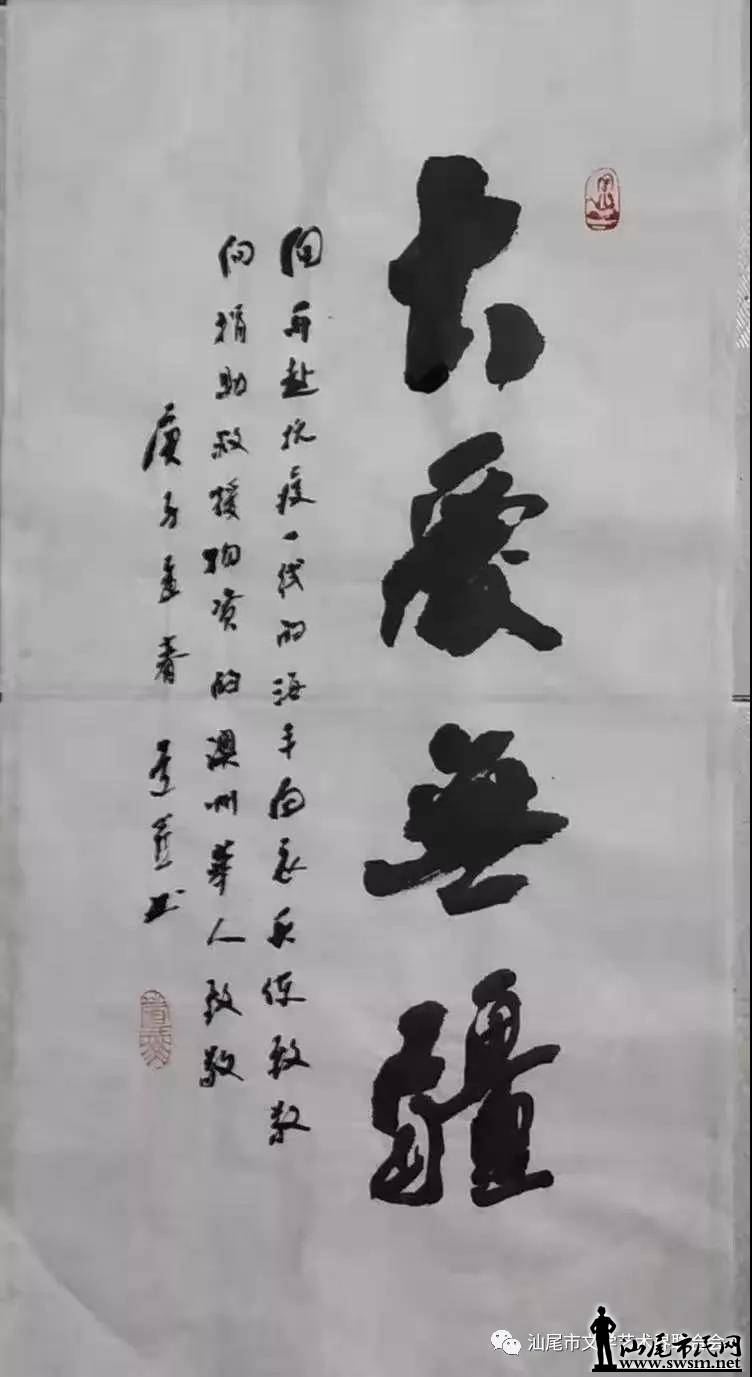 大愛無疆
向再赴抗疫一线的海丰白衣兵团致敬
向捐助救援物资的澳洲華人致敬
庚子孟春 書
汕尾市文学艺术界联合会
汕尾市民网
www.swsm.net